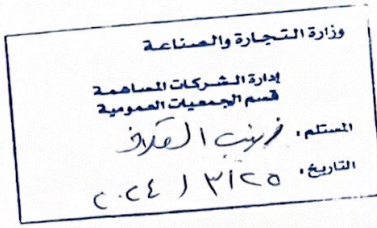 وزارة التجارة والصناعة
إدارة الشركات المساهمة
قسم الجمعيات العمومية
المستلم: زينب القلاف
التاريخ: ٢٠٢٤ / ٣/٢٥